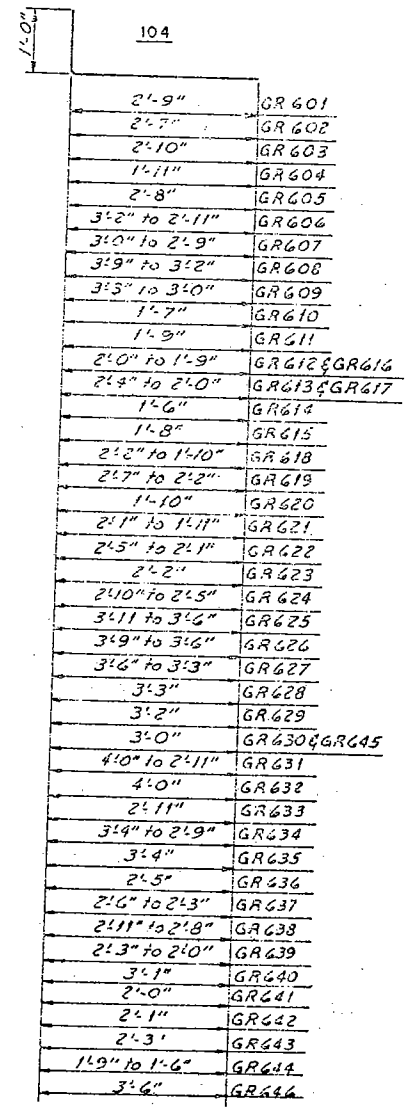 1'-0"
104
2'-9" GR601
2'-7" GR602
2'-10" GR603
1'-11" GR604
2'-8" GR605
3'-2" to 2'-11" GR606
3'-0" to 2'-9" GR607
3'-9" to 3'-2" GR608
3'-3" to 3'-0" GR609
1'-7" GR610
1'-9" GR611
2'-0" to 1'-9" GR612&GR616
2'-4" to 2'-0" GR613&GR617
1'-6" GR614
1'-8" GR615
2'-2" to 1'-10" GR618
2'-7" to 2'-2" GR619
1'-10" GR620
2'-1" to 1'-11" GR621
2'-5" to 2'-1" GR622
2'-2" GR623
2'-10" to 2'-5" GR624
3'-11 to 3'-6" GR625
3'-9" to 3'-6" GR626
3'-6" to 3'-3" GR627
3'-3" GR628
3'-2" GR629
3'-0" GR630&GR645
4'-0" to 2'-11" GR631
4'-0" GR632
2'-11" GR633
3'-4" to 2'-9" GR634
3'-4" GR635
2'-5" GR636
2'-6" to 2'-3" GR637
2'-11" to 2'-8" GR638
2'-3" to 2'-0" GR639
3'-1" GR640
2'-0" GR641
2'-1" GR642
2'-3' GR643
1'-9" to 1'-6" GR644
3'-6" GR646